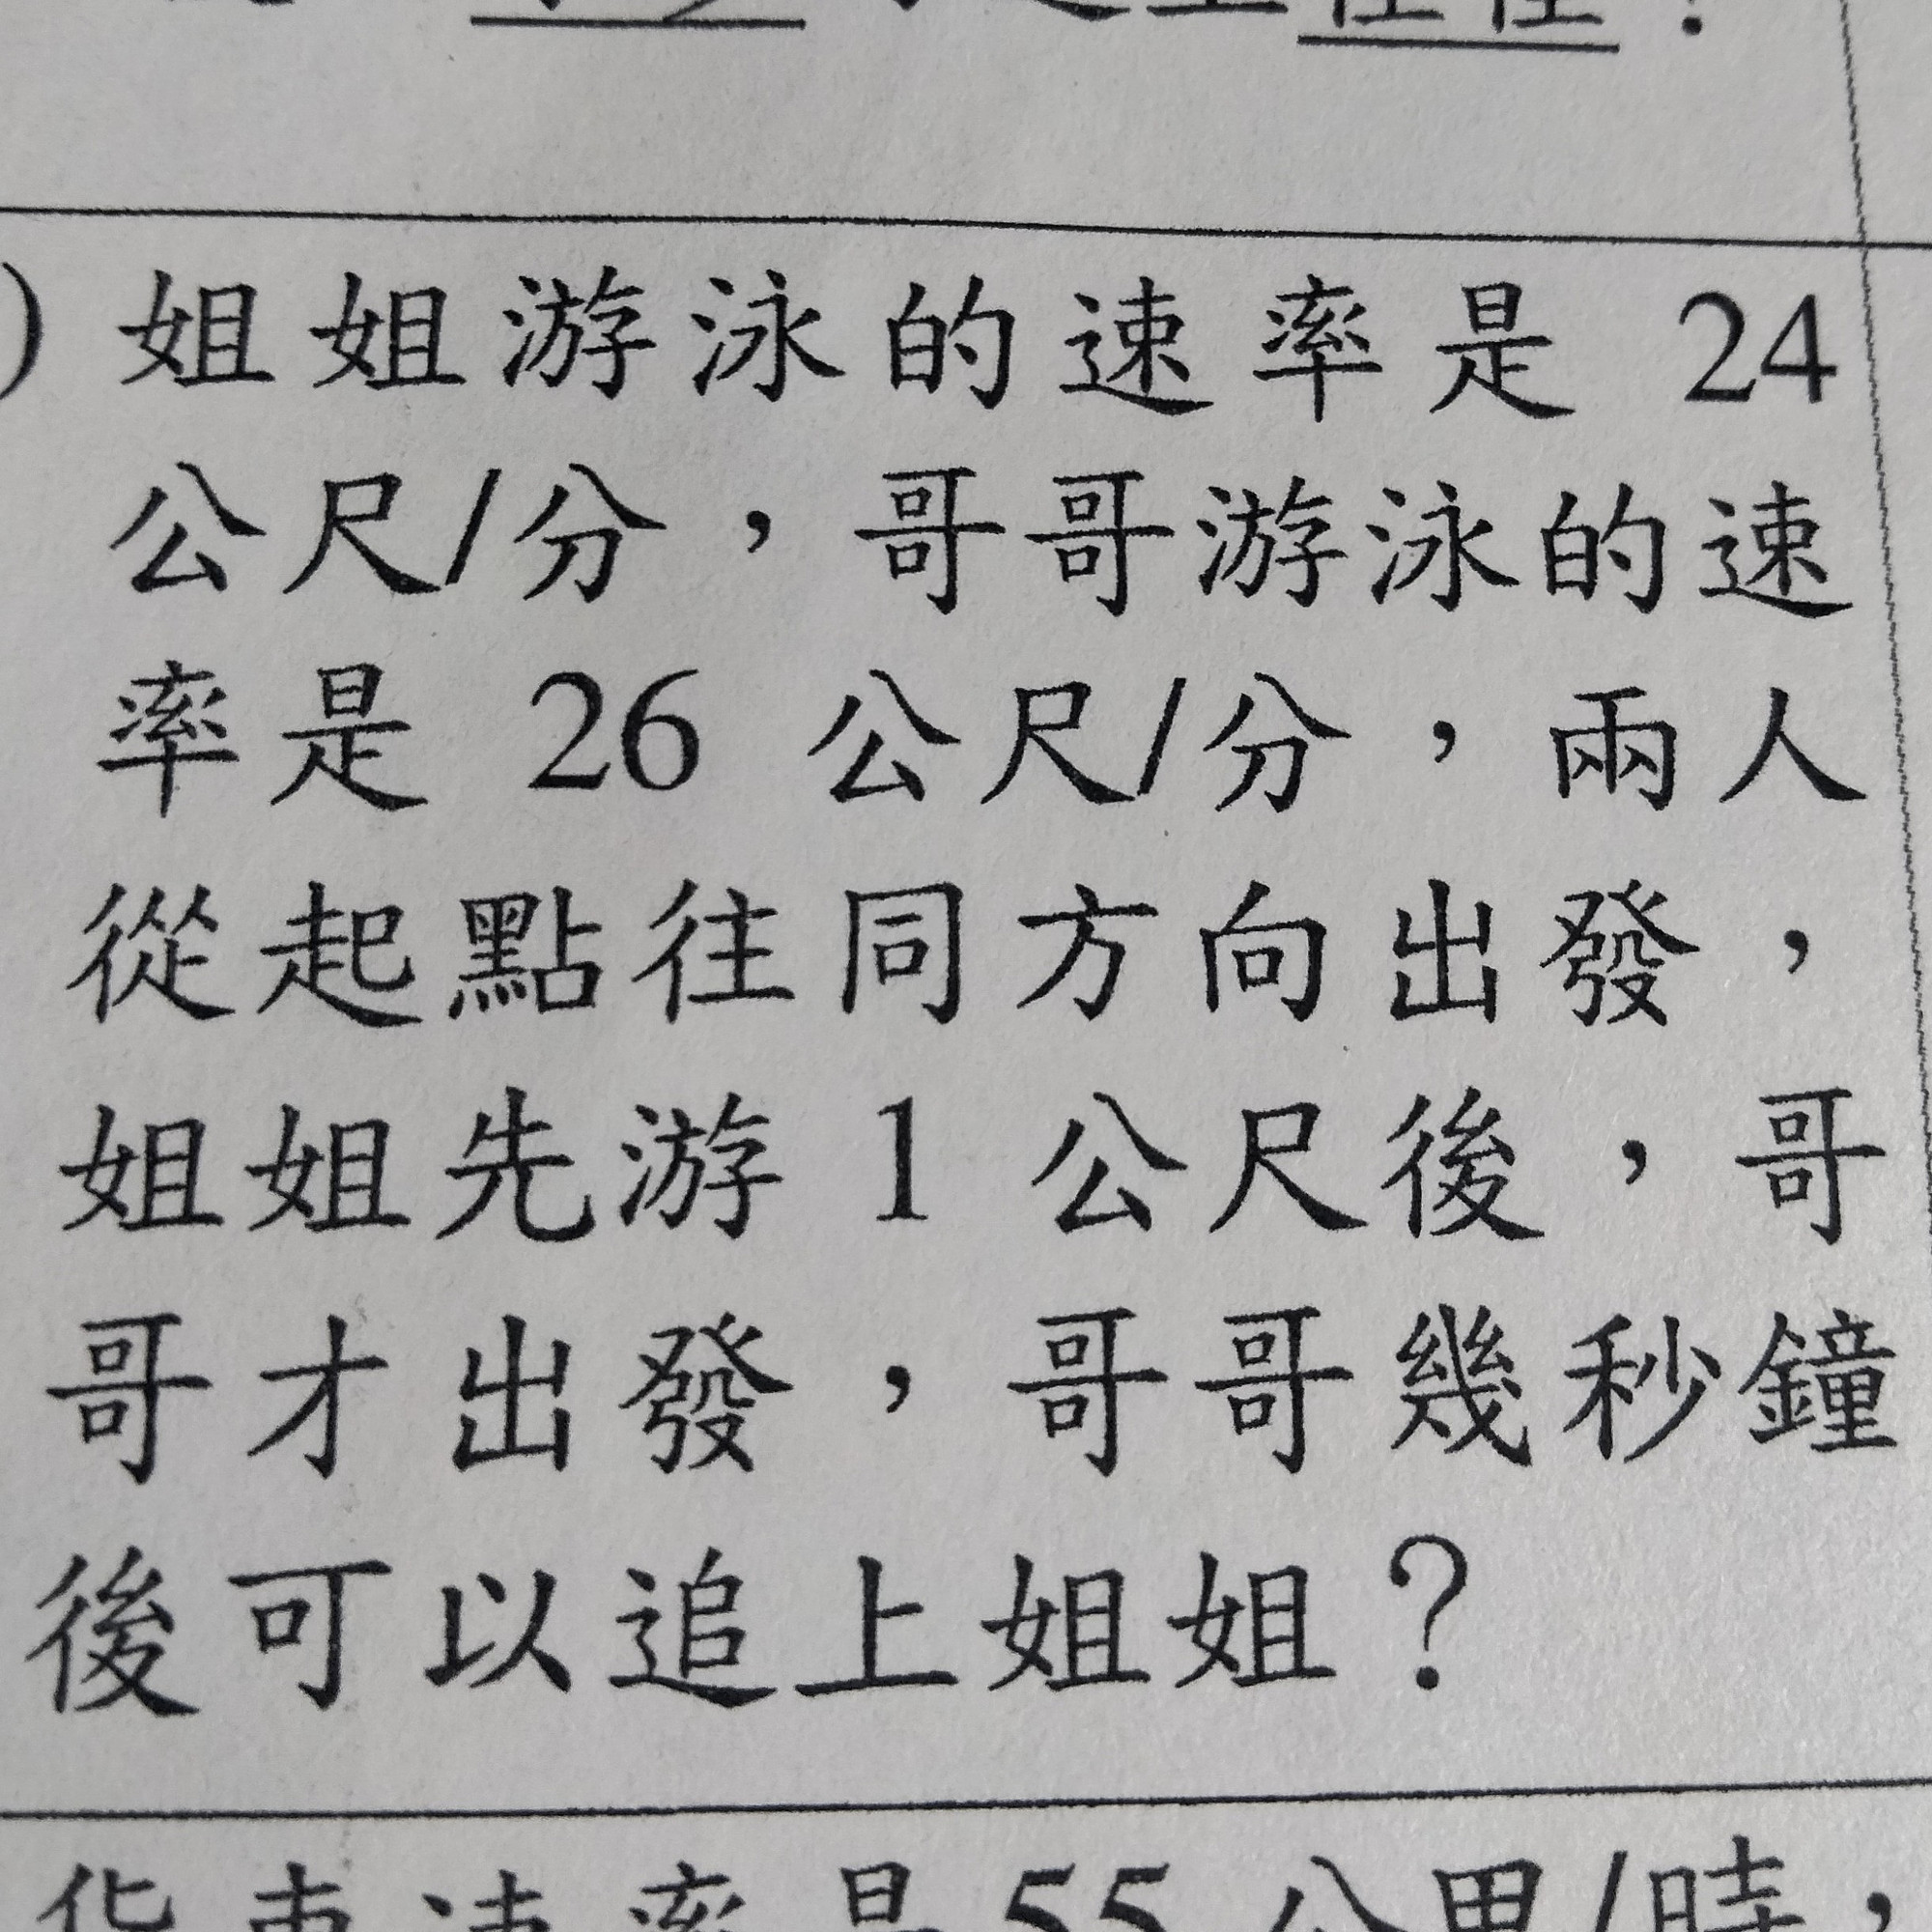 ) 姐姐游泳的速率是 24
公尺/分，哥哥游泳的速
率是 26 公尺/分，兩人
從起點往同方向出發，
姐姐先游 1 公尺後，哥
哥才出發，哥哥幾秒鐘
後可以追上姐姐？
車速率是 55 公里/時，